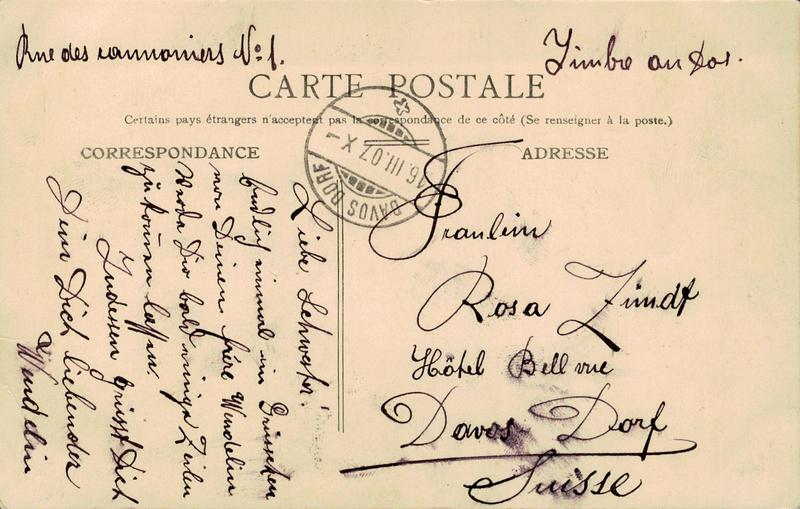 Rue des cannoniers No 1.
Timbre au dos.
CARTE POSTALE
Certains pays étrangers n'acceptent pas la correspondance de ce côté (Se renseigner à la poste.)
CORRESPONDANCE
ADRESSE
DAVOS DORF
16.III.07.X-1
Liebe Schwester!
Endlich einmal ein Grüsschen
von Deinem frère Wendelin
Werde Dir bald einige Zeilen
zu kommen lassen.
Indessen grüsst Dich
Dein Dich liebender
Wendelin
Fraulein
Rosa Zündt
Hôtel Bellvue
Davos Dorf
Suisse